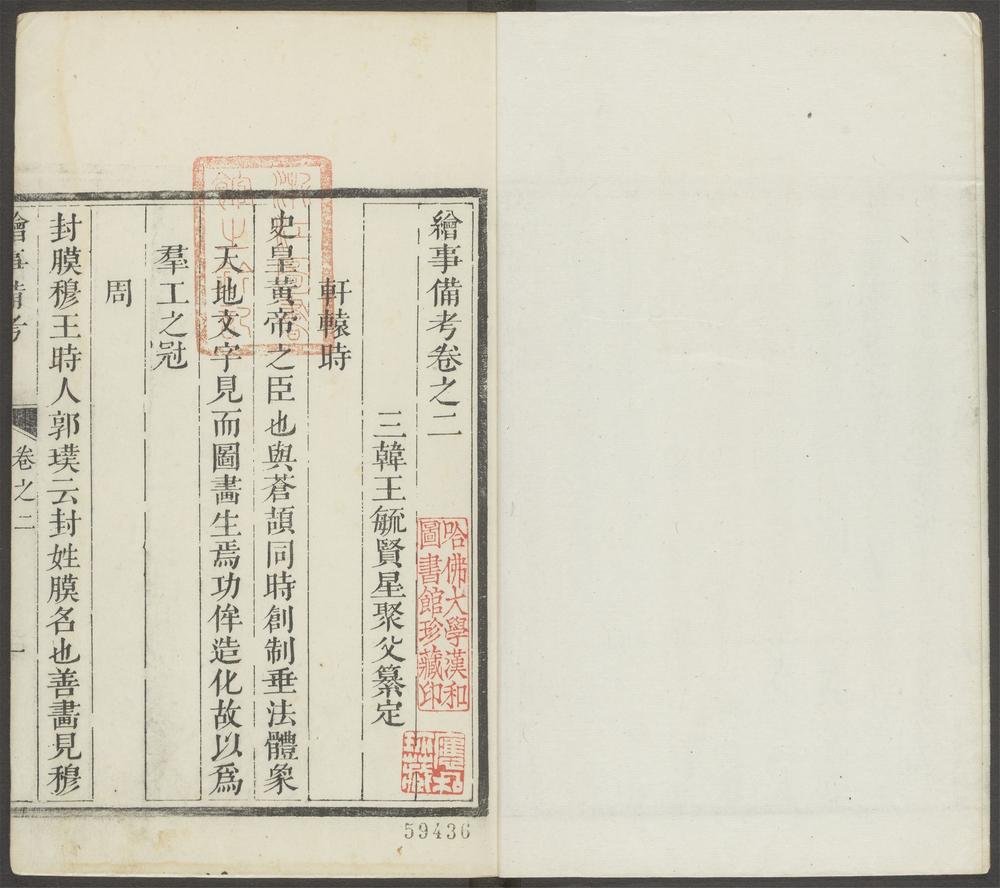 繪事備考卷之二
三韓王毓賢星聚父纂定
軒轅時
史皇黃帝之臣也與蒼頡同時創制垂法體象
天地文字見而圖畫生焉功侔造化故以爲
羣工之冠
周
封膜穆王時人郭璞云封姓膜名也善畫見穆
繪事備考
卷之二
一
哈佛大學漢和
圖書館珍藏印
59436